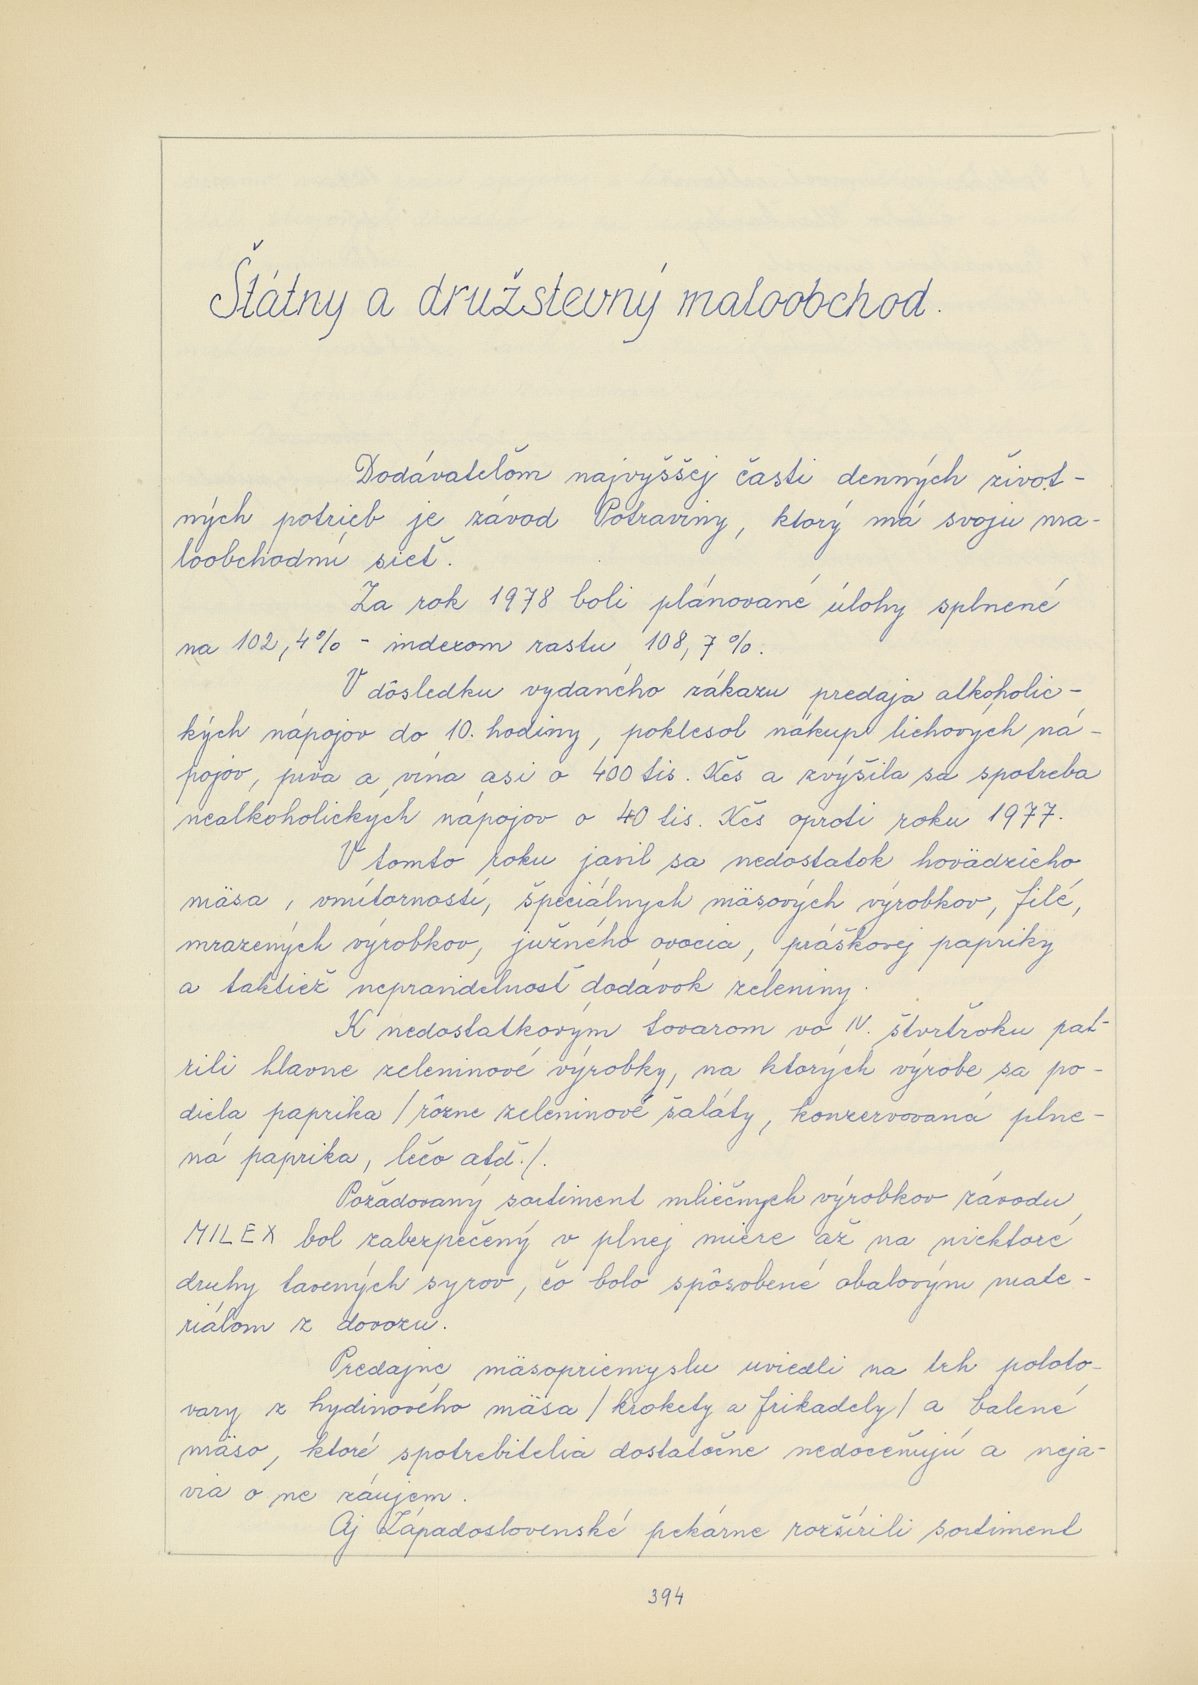 Štátny a družstevný maloobchod.
Dodávateľom najvyššej časti denných život-
ných potrieb je závod Potraviny, ktorý má svoju ma-
loobchodnú sieť.
Za rok 1978 boli plánované úlohy splnené
na 102,4% - indexom rastu 108,7%.
V dôsledku vydaného zákazu predaja alkoholic-
kých nápojov do 10. hodiny, poklesol nákup liehových ná-
pojov, piva a vína asi o 400 tis. Kčs a zvýšila sa spotreba
nealkoholických nápojov o 40 tis. Kčs oproti roku 1977.
V tomto roku javil sa nedostatok hovädzieho
mäsa, vnútorností, špeciálnych mäsových výrobkov, filé,
mrazených výrobkov, južného ovocia, práškovej papriky
a taktiež nepravidelnosť dodávok zeleniny.
K nedostatkovým tovarom vo IV. štvrťroku pat-
rili hlavne zeleninové výrobky, na ktorých výrobe sa po-
diela paprika /rôzne zeleninové šaláty, konzervovaná plne-
ná paprika, lečo atď./.
Požadovaný sortiment mliečnych výrobkov závodu
MILEX bol zabezpečený v plnej miere až na niektoré
druhy tavených syrov, čo bolo spôsobené obalovým mate-
riálom z dovozu.
Predajne mäsopriemyslu uviedli na trh poloto-
vary z hydinového mäsa /krokety a frikadely/ a balené
mäso, ktoré spotrebitelia dostatočne nedoceňujú a neja-
via o ne záujem.
Aj Západoslovenské pekárne rozšírili sortiment
394